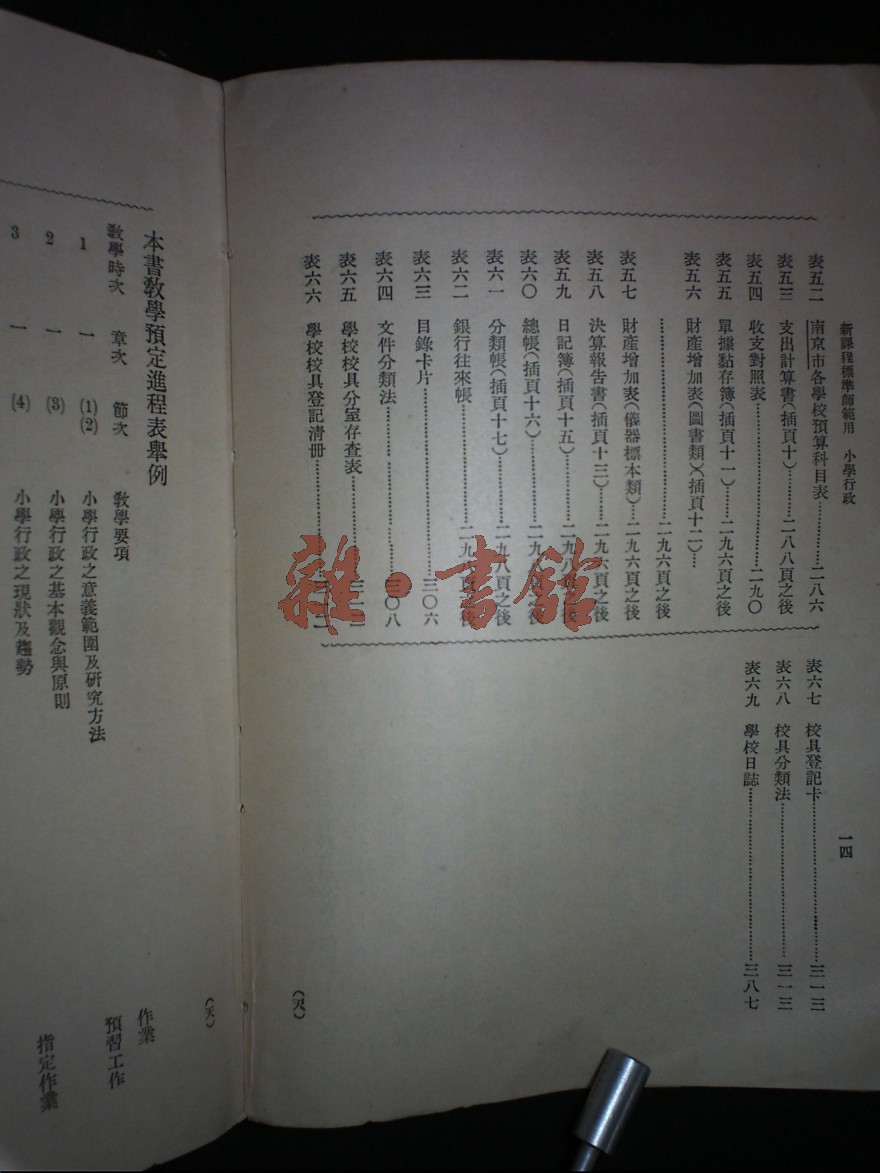 新課程標準師範用　小學行政
一四
表五二　南京市各學校預算科目表…………二八六
表五三　支出計算書(插頁十)……二八八頁之後
表五四　收支對照表…………………………二九〇
表五五　單據黏存簿(插頁十一)……二九六頁之後
表五六　財產增加表(圖書類)(插頁十二)…
…………………………………二九六頁之後
表五七　財產增加表(儀器標本類)…二九六頁之後
表五八　決算報告書(插頁十三)……二九六頁之後
表五九　日記簿(插頁十五)…………二九八頁之後
表六〇　總帳(插頁十六)……………二九八頁之後
表六一　分類帳(插頁十七)…………二九八頁之後
表六二　銀行往來帳…………………二九八頁之後
表六三　目錄卡片……………………………三〇六
表六四　文件分類法…………………………三〇八
表六五　學校校具分室存查表………………
表六六　學校校具登記清冊…………………
表六七　校具登記卡…………………………三一三
表六八　校具分類法…………………………三一三
表六九　學校日誌……………………………三八七
(天)
本書教學預定進程表舉例
教學時次　章次　節次　教學要項
作業
預習工作
指定作業
1　一　(1)(2)　小學行政之意義範圍及研究方法
2　一　(3)　小學行政之基本觀念與原則
3　一　(4)　小學行政之現狀及趨勢
(天)
雜·書館